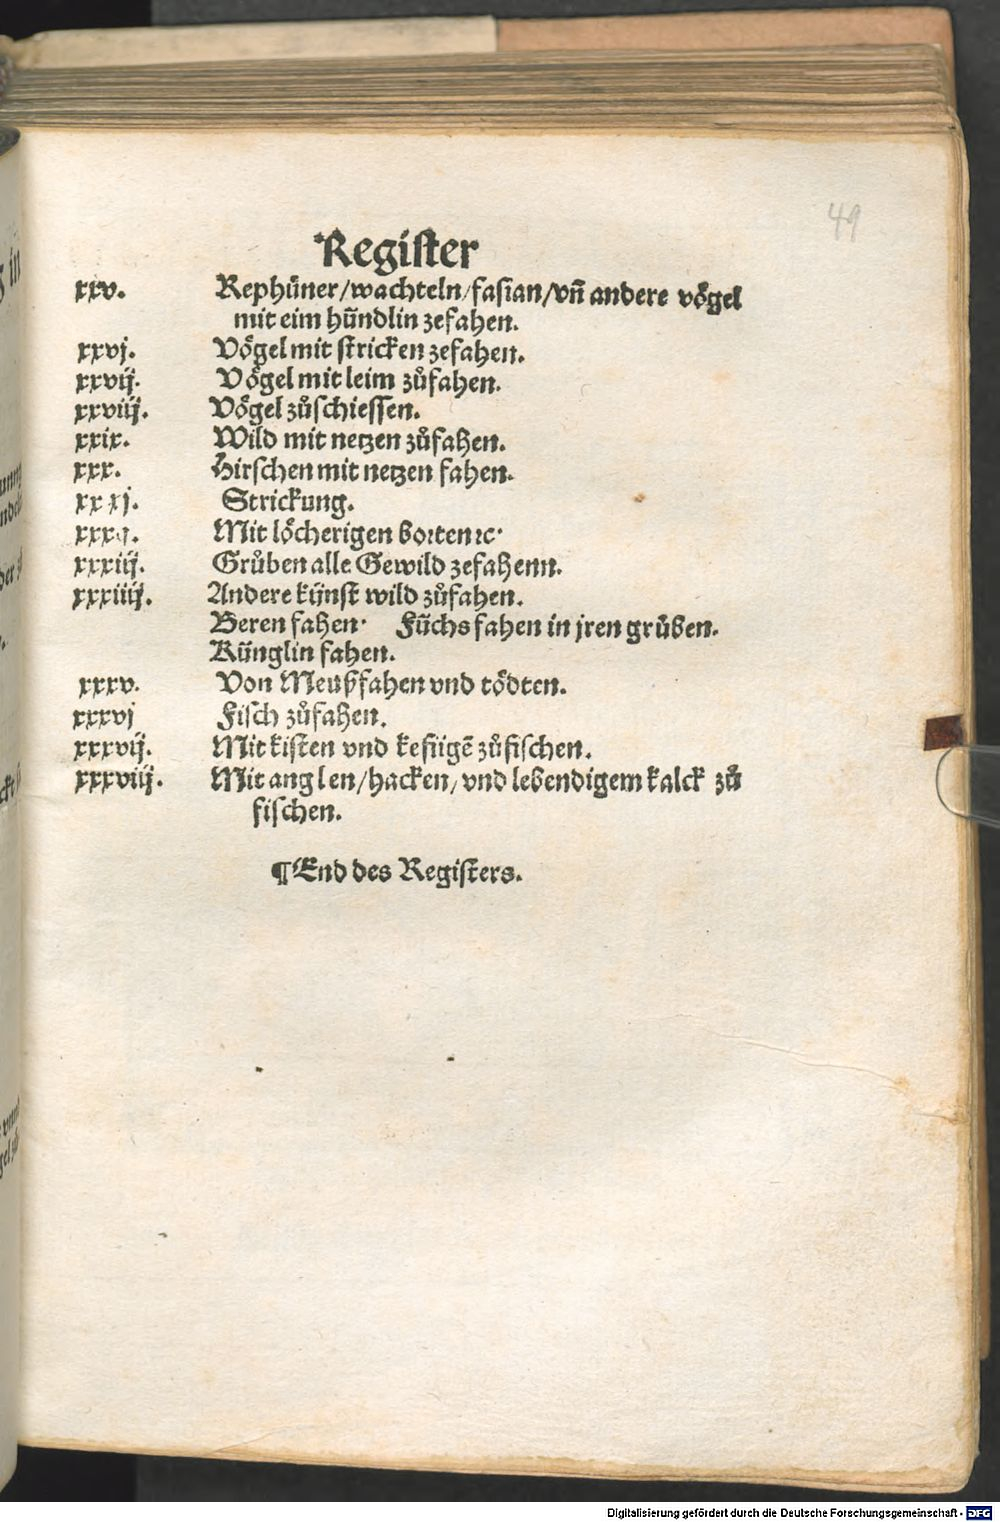 49
Register
xxv. Rephüner/wachteln/fasian/vñ andere vögel
mit eim hündlin zefahen.
xxvj. Vögel mit stricken zefahen.
xxvij. Vögel mit leim zůfahen.
xxviij. Vögel zůschiessen.
xxix. Wild mit netzen zůfahen.
xxx. Hirschen mit netzen fahen.
xxxj. Strickung.
xxxij. Mit löcherigen borten ⁊c.
xxxiij. Grůben alle Gewild zefahenn.
xxxiiij. Andere kijnst wild zůfahen.
Beren fahen. Füchs fahen in jren grůben.
Künglin fahen.
xxxv. Von Meußfahen vnd tödten.
xxxvj Fisch zůfahen.
xxxvij. Mit kisten vnd kefiigē zůfischen.
xxxviij. Mit anglen/hacken/vnd lebendigem kalck zů
fischen.
¶End des Registers.
Digitalisierung gefördert durch die Deutsche Forschungsgemeinschaft - DFG